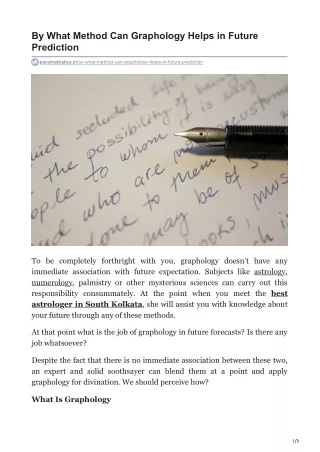 By What Method Can Graphology Helps in Future
Prediction
paromathakur.in/by-what-method-can-graphology-helps-in-future-prediction
secluded life
the possibility of
to whom it is easy
who are
to them
may be of
To be completely forthright with you, graphology doesn't have any
immediate association with future expectation. Subjects like astrology,
numerology, palmistry or other mysterious sciences can carry out this
responsibility consummately. At the point when you meet the best
astrologer in South Kolkata, she will assist you with knowledge about
your future through any of these methods.
At that point what is the job of graphology in future forecasts? Is there any
job whatsoever?
Despite the fact that there is no immediate association between these two,
an expert and solid soothsayer can blend them at a point and apply
graphology for divination. We should perceive how?
What Is Graphology
1/3